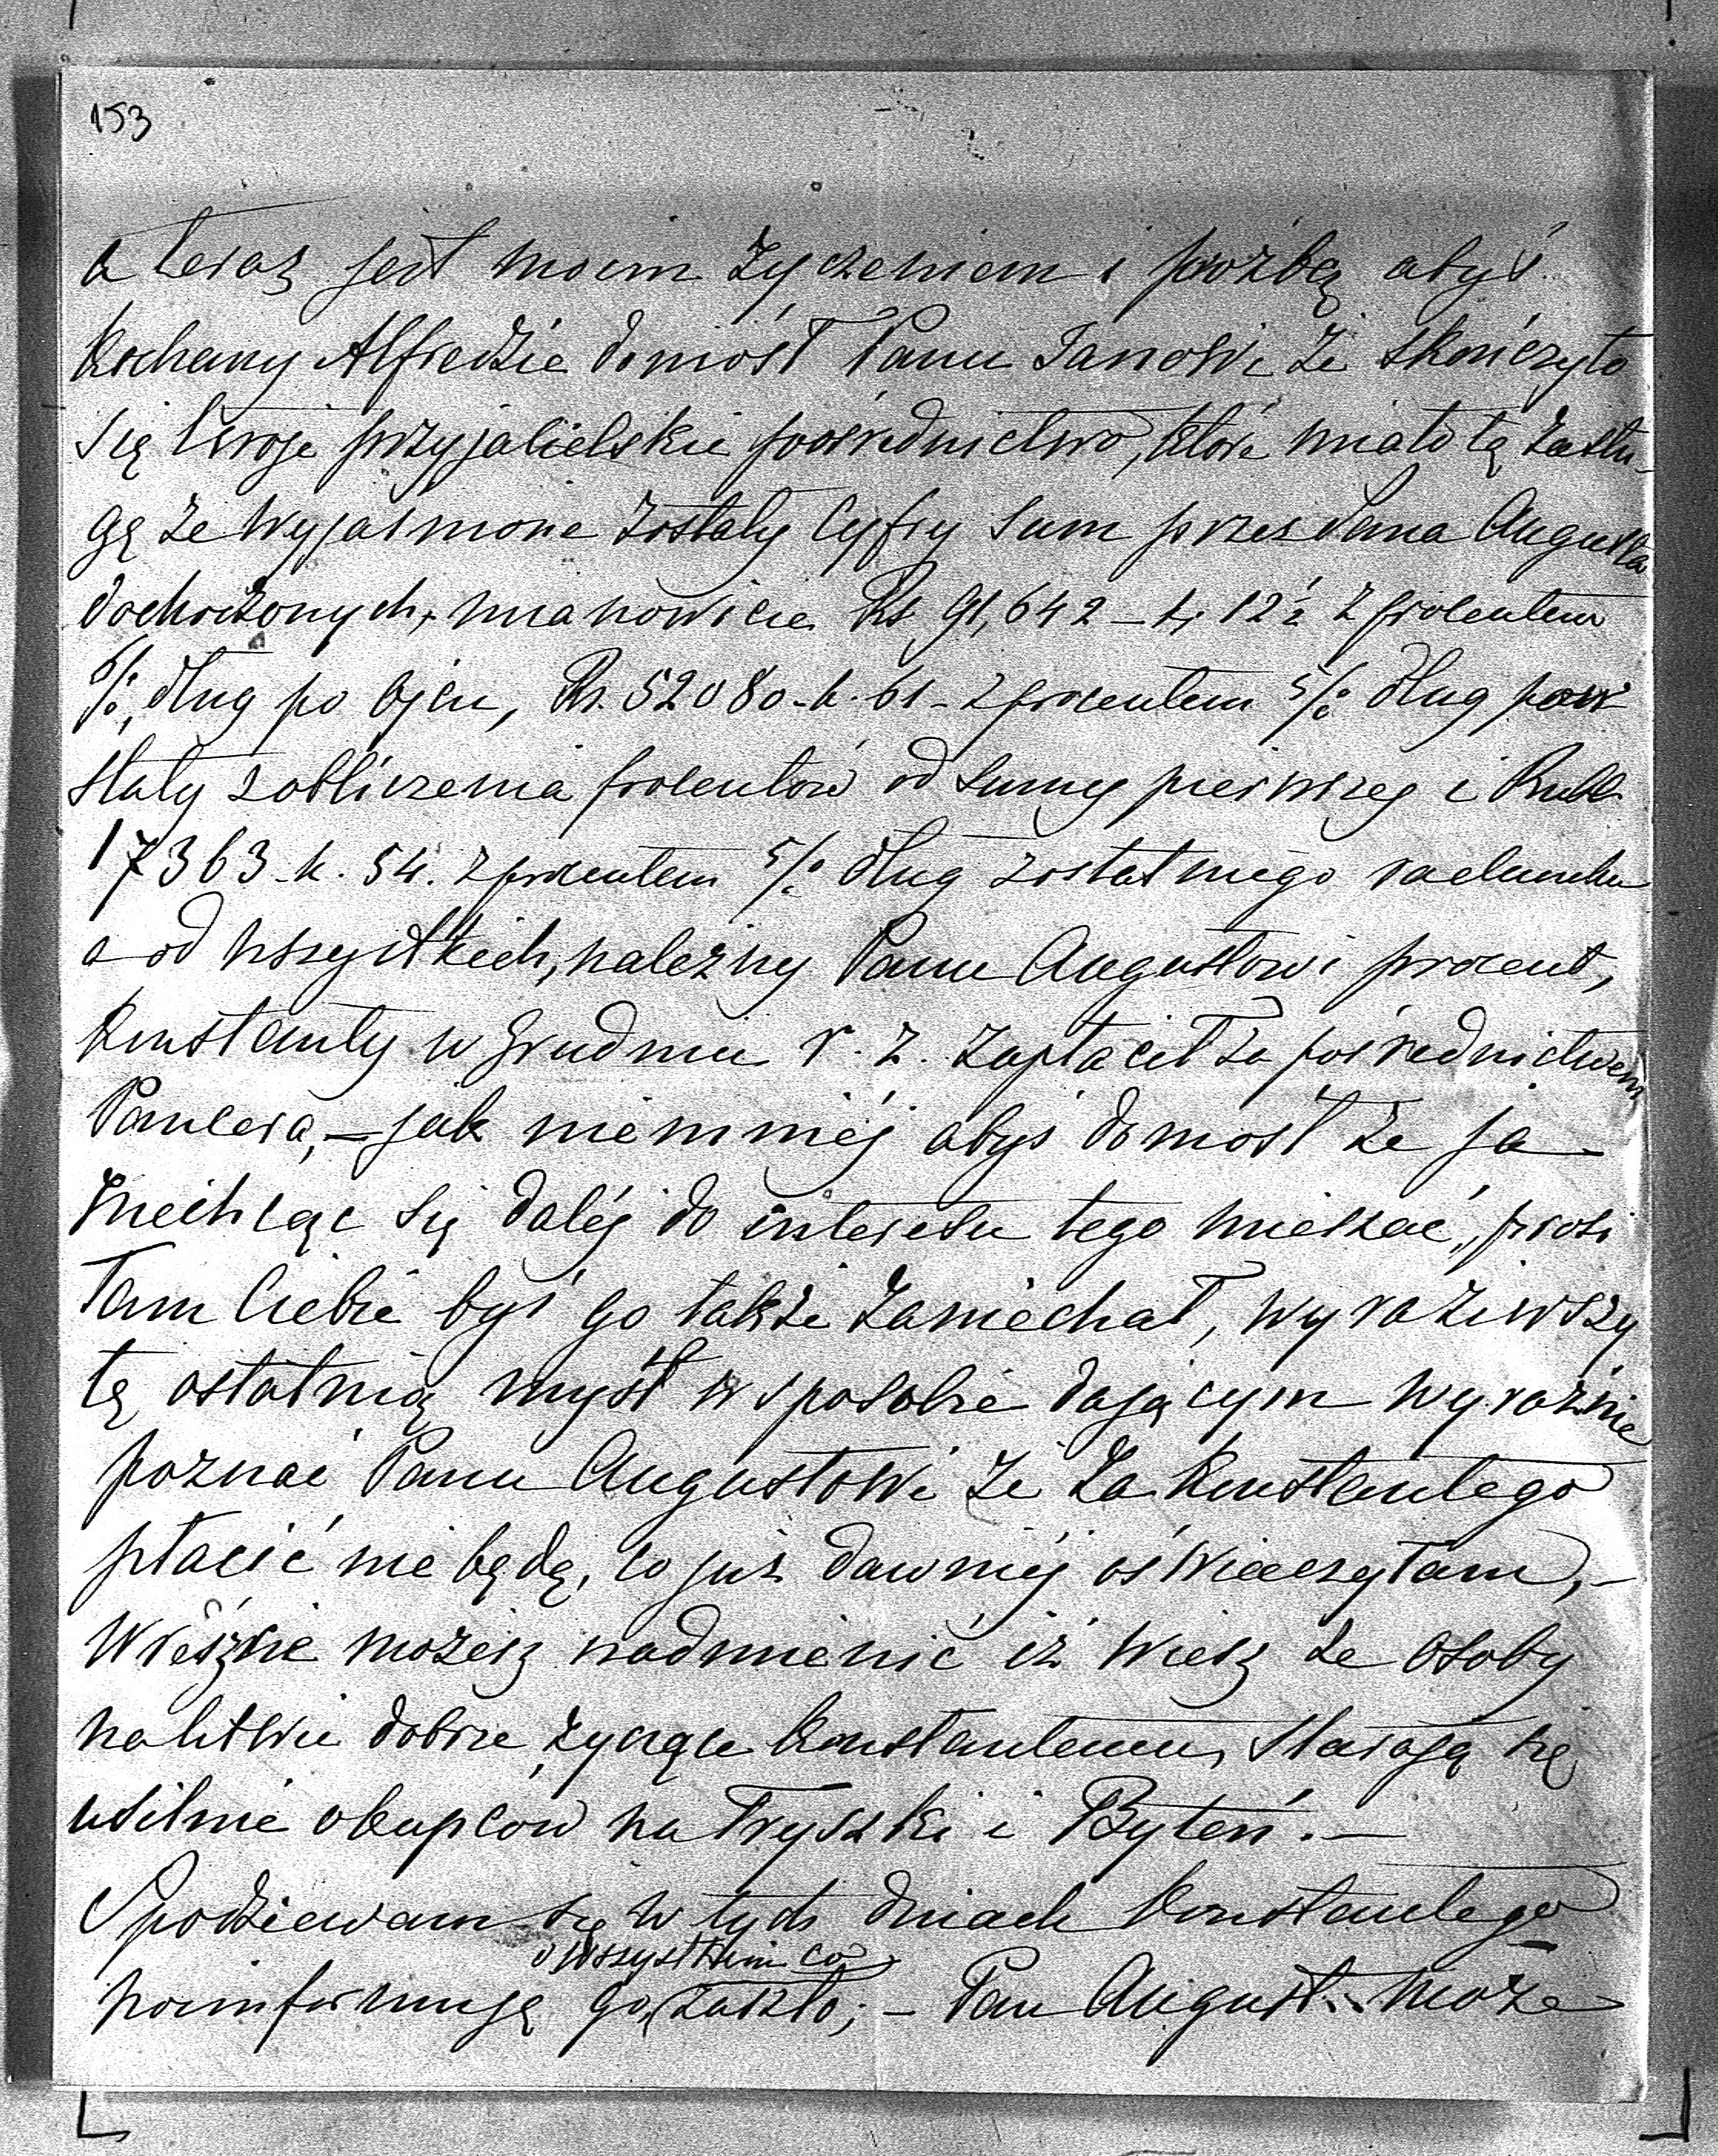 153
a teraz jest moim życzeniem i prożbą abyś
Kochany Alfredzie doniósł Panu Janowi że skończyło
się twoje przyjacielskie pośrednictwo, które miało tą zasłu-
gę że wyjaśnione zostały cyfry sum przez Pana Augusta
dochodzonych, mianowicie Rs 91,642 – k. 12½ z procentem
6/0, dług po Ojcu, Rs. 52080 – k. 61 – z procentem 5/0 dług pow
stały z obliczenia procentów od sumy pierwszej i Rubl.
17363 – k. 54. z procentem 5/0 dług z ostatniego rachunku
a od wszystkich, należny Panu Augustowi procent,
Konstanty w Grudniu r. z. zapłacił za pośrednictwem
Pawlera, – jak niemniéj abyś doniósł że ja –
niechcąc się daléj do interesu tego mieszać, prosi
łam Ciebie byś go także zaniechał, wyraziwszy
tę ostatnią myśl w sposobie dającym wyraźnie
poznać Panu Augustowi że za Konstantego
płacić nie będę, co już dawniéj oświadczyłam, –
Wreszcie możesz nadmienić iż wiesz że osoby
na Litwie dobrze życzące Konstantemu, starają się
usilnie o kupców na Tryszki i Byteń. –
Spodziewam się w tych dniach Konstantego
o wszystkim co
poinformuję go, zaszło; – Pan August może